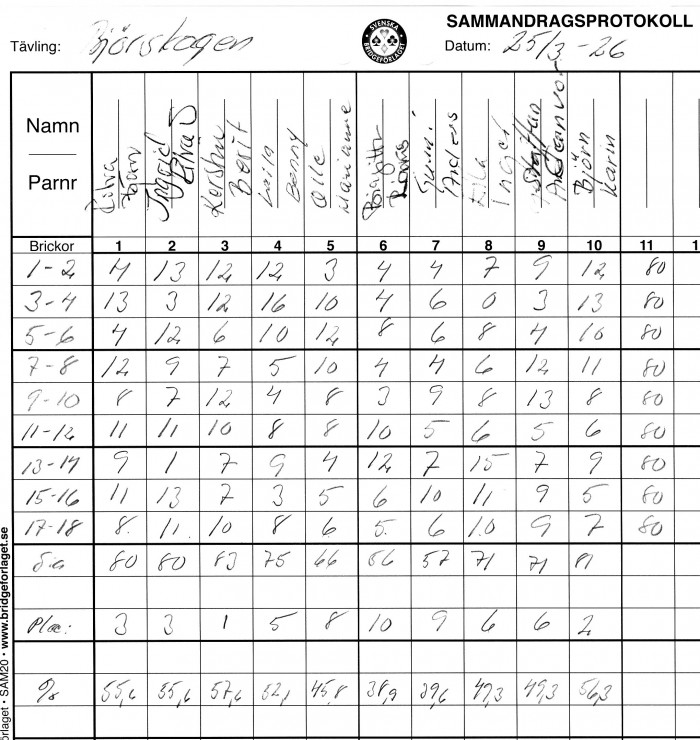 SAMMANDRAGSPROTOKOLL
Tävling: Björskogen
SVENSKA BRIDGEFÖRLAGET
Datum: 25/3-26
Namn
Parnr
Ingrid
Kerstin Berit
Laila Benny
Olle Marianne
Birgitta
Gunni Anders
Ulla Inger
Staffan
Björn Karin
Brickor 1 2 3 4 5 6 7 8 9 10 11 1
1-2 4 13 12 12 3 4 4 7 9 12 80
3-4 13 3 12 16 10 4 6 0 3 13 80
5-6 4 12 6 10 12 8 6 8 4 10 80
7-8 12 9 7 5 10 4 4 6 12 11 80
9-10 8 7 12 4 8 3 9 8 13 8 80
11-12 11 11 10 8 8 10 5 6 5 6 80
13-14 9 1 7 9 4 12 7 15 7 9 80
15-16 11 13 7 3 5 6 10 11 9 5 80
17-18 8. 11. 10 8 6 5. 6 10 9 7 80
S:a 80 80 83 75 66 56 57 71 71 81
Plac: 3 3 1 5 8 10 9 6 6 2
% 55,6 55,6 57,6 52,1 45,8 38,9 39,6 49,3 49,3 56,3
örlaget • SAM20 • www.bridgeforlaget.se